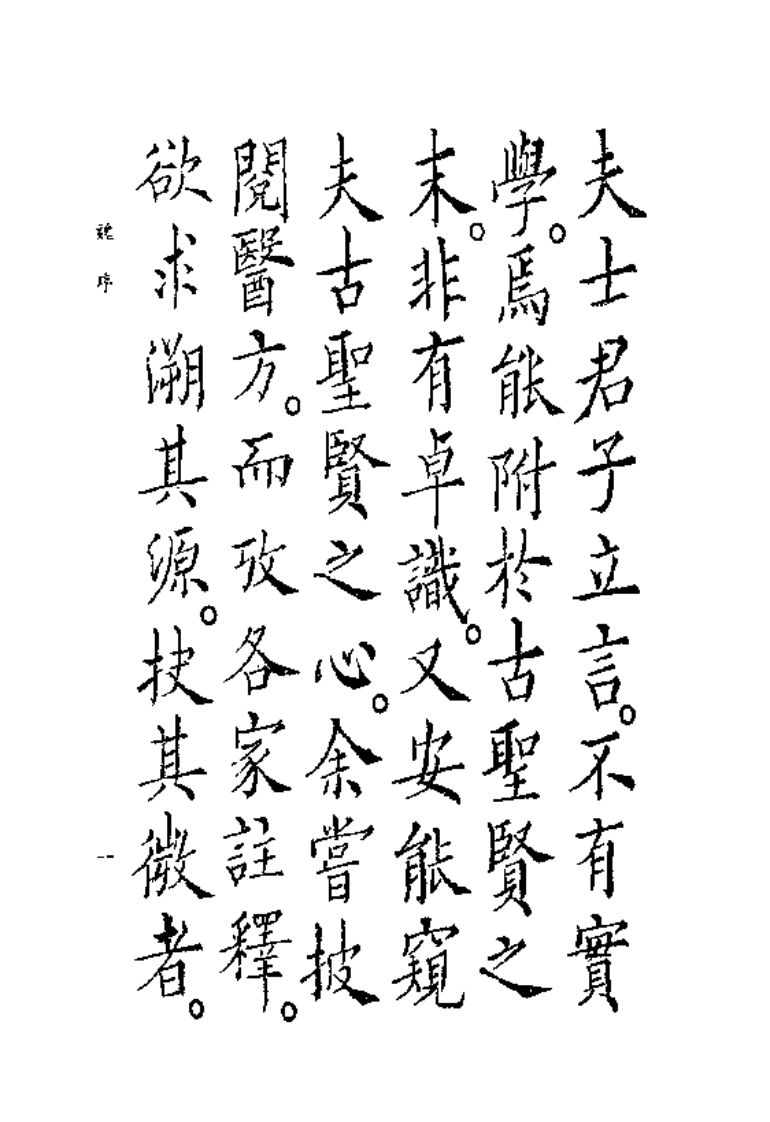 夫士君子立言。不有實
學。焉能附於古聖賢之
末。非有卓識。又安能窺
夫古聖賢之心。余嘗披
閱醫方。而攷各家註釋。
欲求溯其源。抉其微者。
序
一